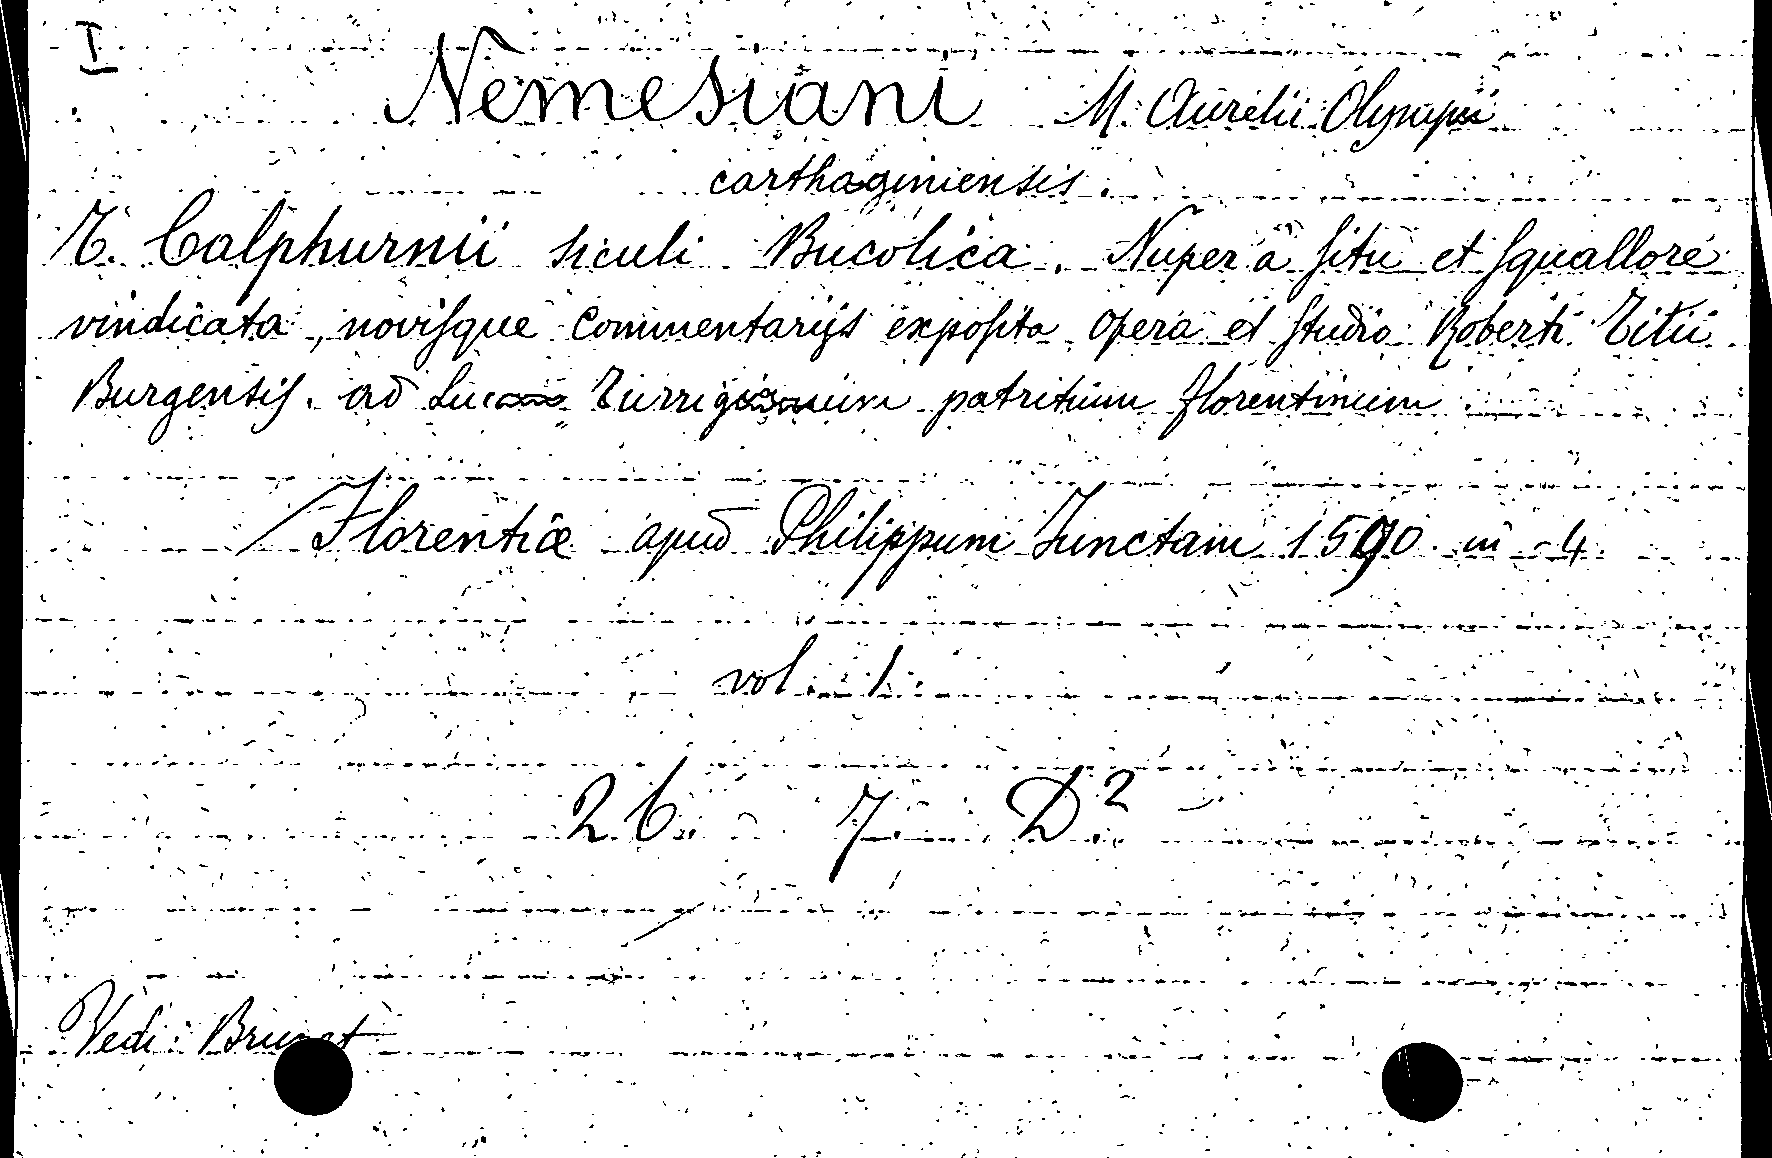 I
Nemesiani M. Aurelii Olympii
carthaginiensis.
T. Calphurnii siculi Bucolica. Nuper à ſitu et ſquallore
vindicata, noviſque commentarijs expoſita operâ et ſtudio Roberti Titii
Burgensiſ. ad Turrigianum patritium florentinum
Florentiæ apud Philippum Iunctam 1590 in 4
vol. 1.
26. 7. D.2
Vedi: Brunet